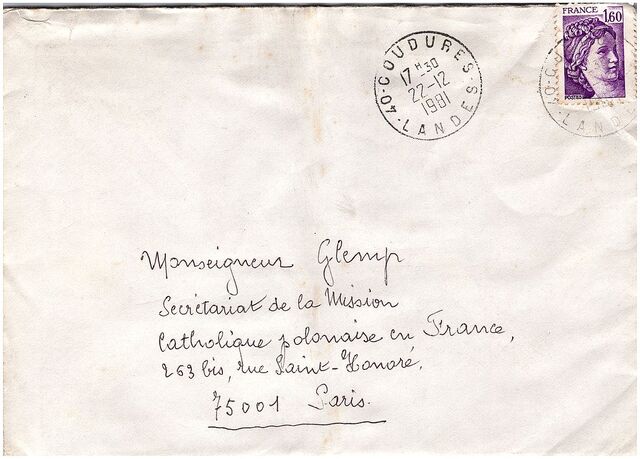 FRANCE
1,60
POSTES
40-COUDURES
17 H-30
22-12
1981
-LANDES-
Monseigneur Glemp
Secrétariat de la Mission
Catholique polonaise en France,
263 bis, rue Saint-Honoré,
75001 Paris.